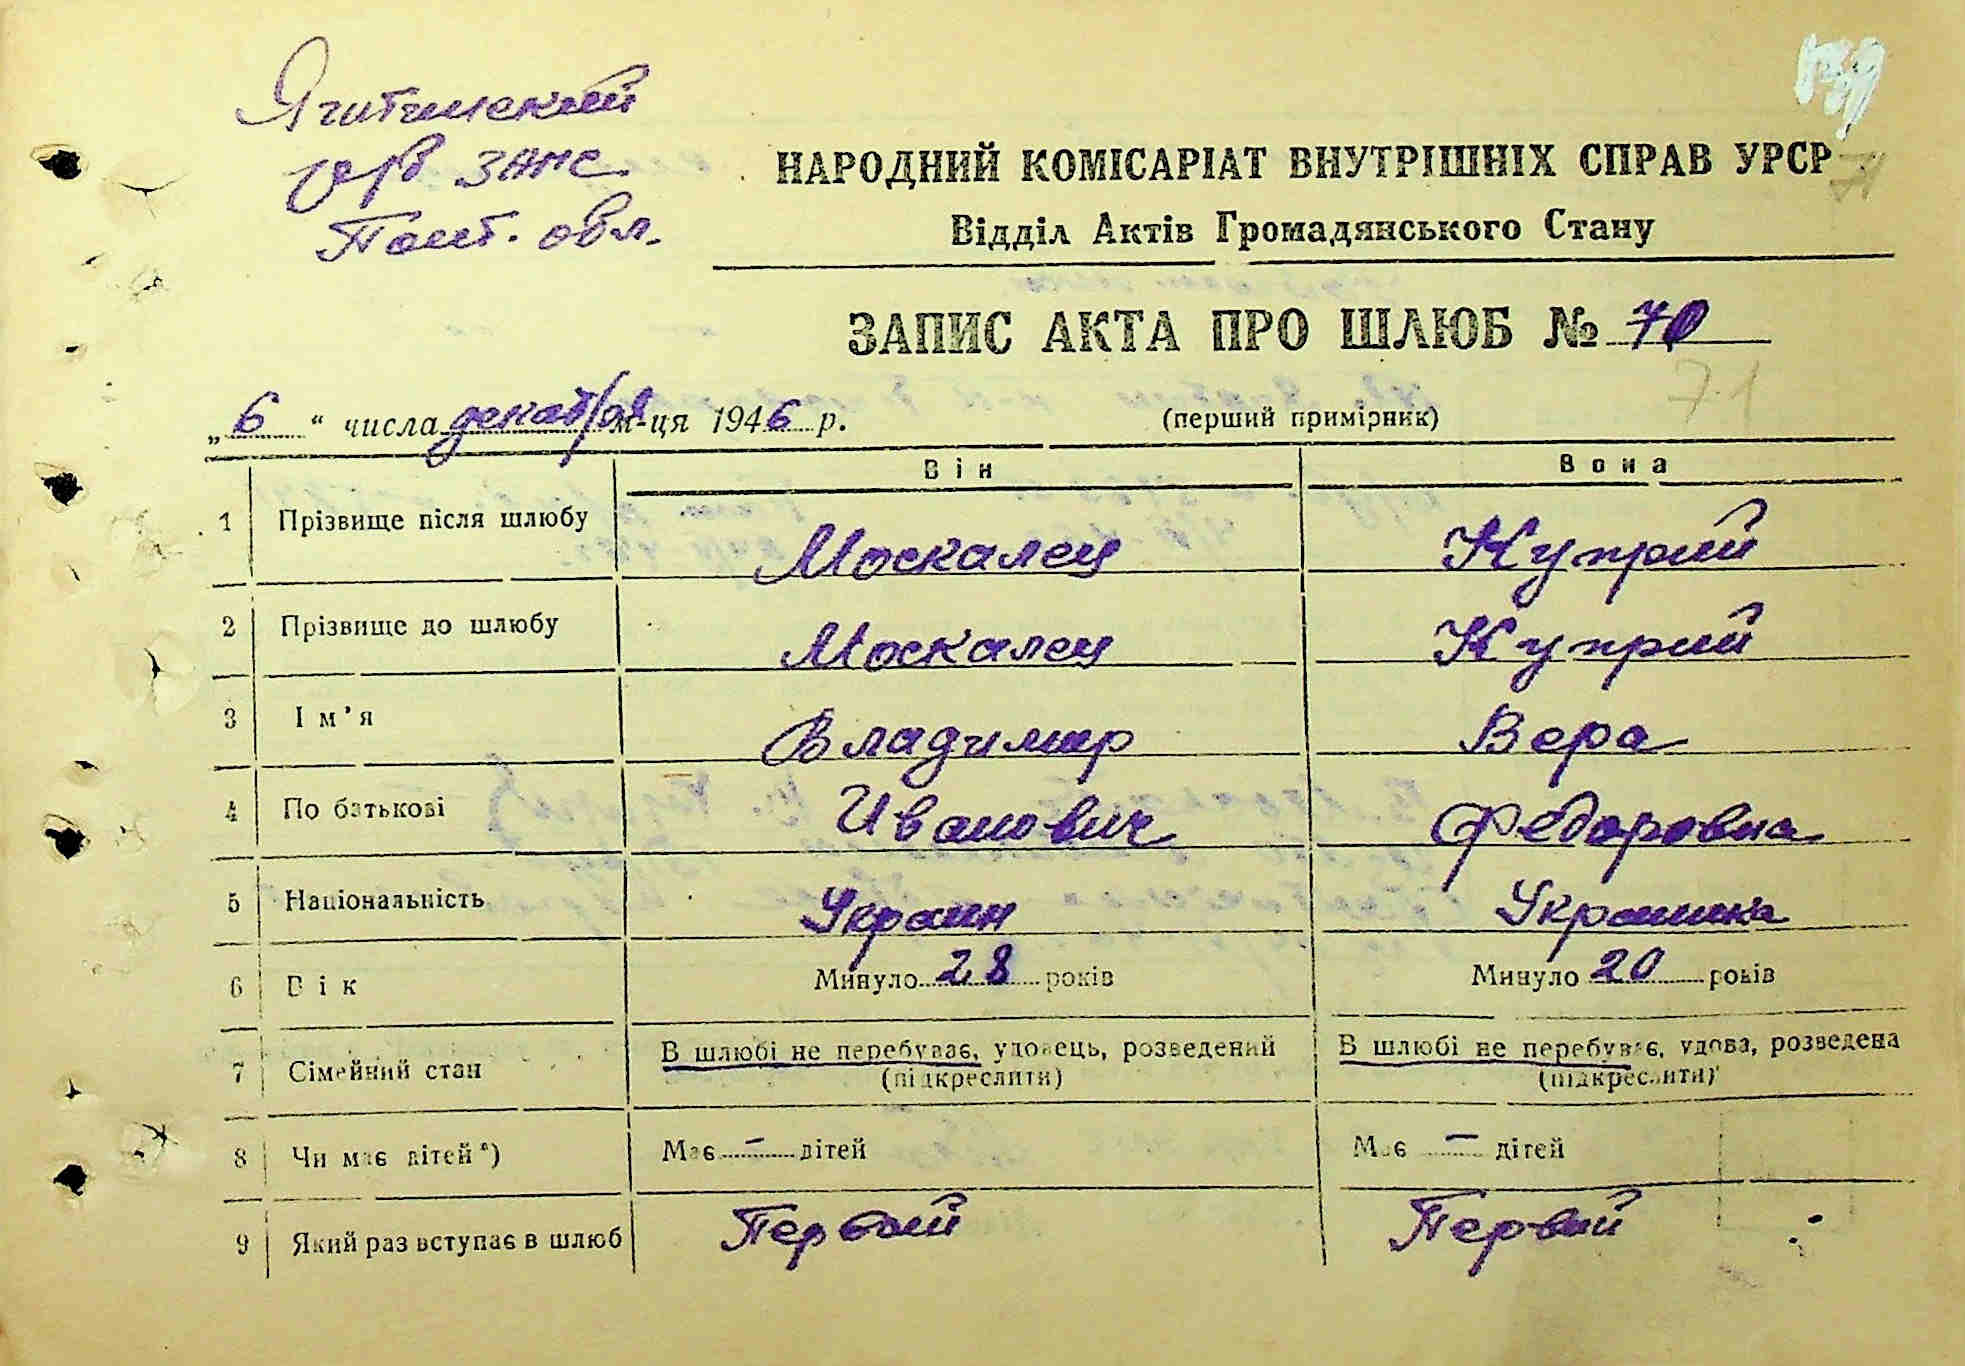 Яготинский
орб ЗАГС
Полт. обл.
НАРОДНИЙ КОМІСАРІАТ ВНУТРІШНІХ СПРАВ УРСР
71
Відділ Актів Громадянського Стану
ЗАПИС АКТА ПРО ШЛЮБ № 70
71
„6“ числа декабря м-ця 1946 р. (перший примірник)
Він Вона
1 Прізвище після шлюбу Москалец Куприй
2 Прізвище до шлюбу Москалец Куприй
3 Ім’я Владимир Вера
4 По батькові Иванович Федоровна
5 Національність Украин Украинка
6 Вік Минуло 28 років Минуло 20 років
7 Сімейний стан В шлюбі не перебуває, удовець, розведений (підкреслити) В шлюбі не перебуває, удова, розведена (підкреслити)
8 Чи має дітей*) Має – дітей Має – дітей
9 Який раз вступає в шлюб Первый Первый